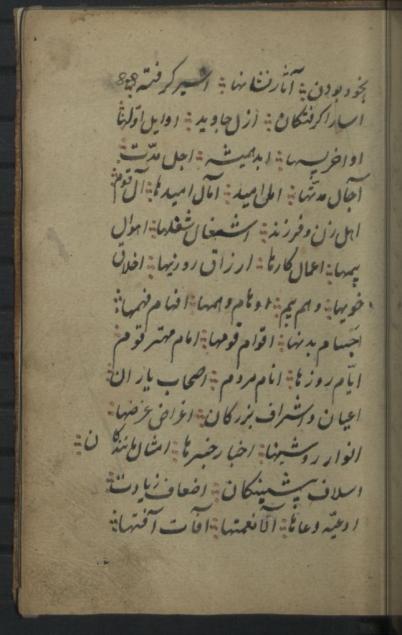 بخود بودن آثار نشانها اسیر گرفته
اسارا گرفتگان ازل جاوید اوایل اولها
اواخر پسها ابد همیشه اجل مدت
آجال مدتها امل امید آمال امیدها آل قوم
اهل زن و فرزند اشغال شغلها اهوال
بیمها اعمال کارها ارزاق روزیها اخلاق
خویها وهم بیم اوهام وهمها افهام فهمها
اجسام بدنها اقوام قومها امام مهتر قوم
ایام روزها انام مردم اصحاب یاران
اعیان و اشراف بزرگان اعراض عرضها
انوار روشنیها اخبار خبرها امثال مانندگان
اسلاف پیشینگان اضعاف زیادت
ادعیه دعاها آلا نعمتها آفات آفتها